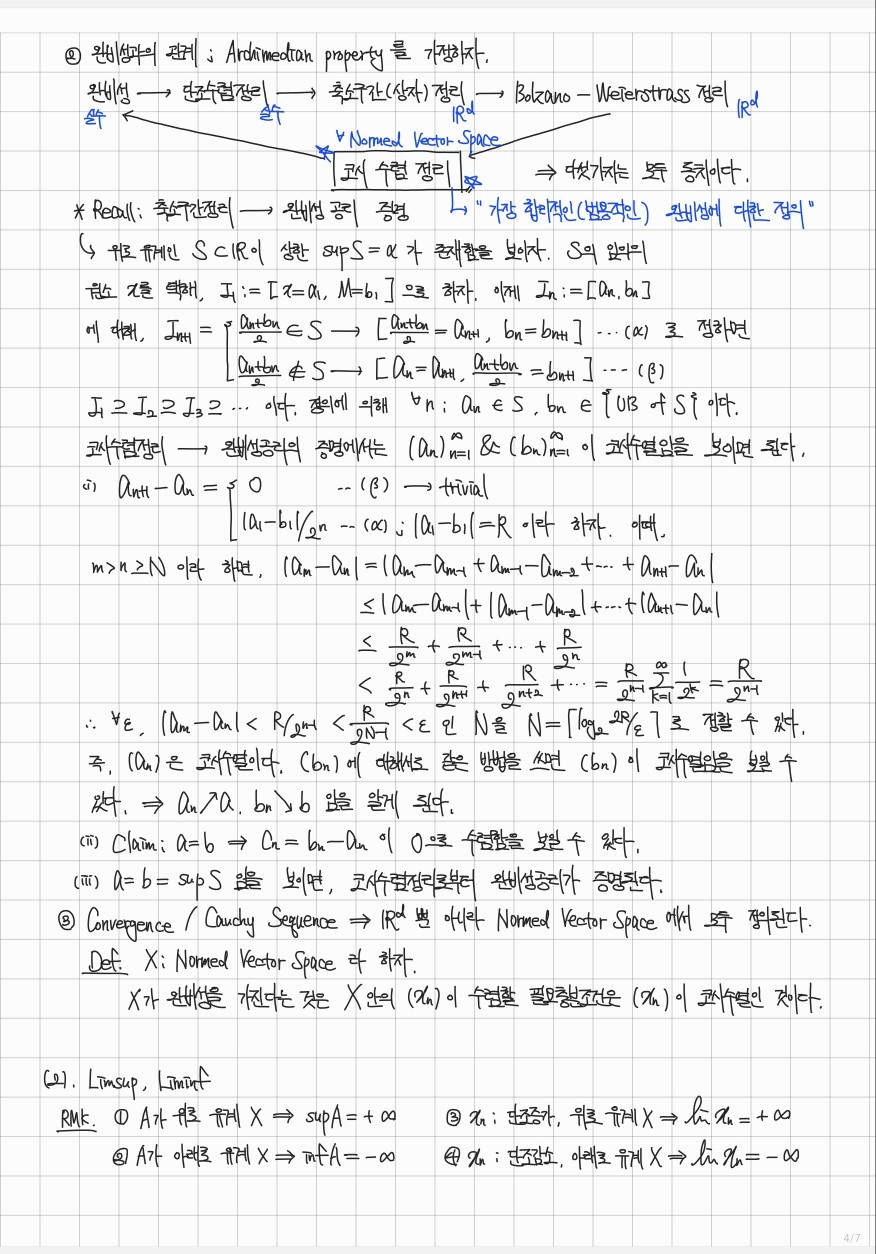 ② 완비성과의 관계 ; Archimedian property를 가정하자.
완비성 → 단조수렴정리 → 축소구간(상자) 정리 → Bolzano - Weierstrass 정리
실수 실수 ℝᵈ ℝᵈ
∀ Normed Vector Space
코시 수렴 정리 ⇒ 다섯가지는 모두 동치이다.
* Recall; 축소구간정리 → 완비성 공리 증명 ↳ "가장 합리적인(범용적인) 완비성에 대한 정의"
↳ 위로 유계인 S⊂ℝ이 상한 supS = α가 존재함을 보이자. S의 임의의
원소 x를 택해, I₁ := [x=a₁, M=b₁]으로 하자. 이제 Iₙ := [aₙ, bₙ]
에 대해, Iₙ₊₁ = { (aₙ+bₙ)/2 ∈ S → [(aₙ+bₙ)/2 = aₙ₊₁, bₙ = bₙ₊₁] ···(α) 로 정하면
(aₙ+bₙ)/2 ∉ S → [aₙ = aₙ₊₁, (aₙ+bₙ)/2 = bₙ₊₁] ···(β)
I₁ ⊇ I₂ ⊇ I₃ ⊇ ··· 이다. 정의에 의해 ∀n; aₙ ∈ S, bₙ ∈ {UB of S}이다.
코시수렴정리 → 완비성공리의 증명에서는 (aₙ)ₙ₌₁^∞ & (bₙ)ₙ₌₁^∞ 이 코시수열임을 보이면 된다.
(i) aₙ₊₁ - aₙ = { 0 ··(β) → trivial
|a₁-b₁|/2ⁿ ··(α) ; |a₁-b₁| = R 이라 하자. 이때,
m>n≥N 이라 하면, |aₘ-aₙ| = |aₘ-aₘ₋₁ + aₘ₋₁-aₘ₋₂ +··· + aₙ₊₁-aₙ|
≤ |aₘ-aₘ₋₁| + |aₘ₋₁-aₘ₋₂| +···+ |aₙ₊₁-aₙ|
≤ R/2ᵐ + R/2ᵐ⁻¹ + ··· + R/2ⁿ
< R/2ⁿ + R/2ⁿ⁺¹ + R/2ⁿ⁺² + ··· = R/2ⁿ⁻¹ ∑ₖ₌₁^∞ 1/2ᵏ = R/2ⁿ⁻¹
∴ ∀ε, |aₘ-aₙ| < R/2ⁿ⁻¹ < R/2ᴺ⁻¹ < ε 인 N을 N = ⌈log₂ 2R/ε⌉로 정할 수 있다.
즉, (aₙ)은 코시수열이다. (bₙ)에 대해서도 같은 방법을 쓰면 (bₙ)이 코시수열임을 보일 수
있다. ⇒ aₙ↗a, bₙ↘b 임을 알게 된다.
(ii) Claim; a=b ⇒ Cₙ = bₙ-aₙ 이 0으로 수렴함을 보일 수 있다.
(iii) a=b=supS 임을 보이면, 코시수렴정리로부터 완비성공리가 증명된다.
③ Convergence / Cauchy Sequence ⇒ ℝᵈ 뿐 아니라 Normed Vector Space에서 모두 정의된다.
Def. X; Normed Vector Space 라 하자.
X가 완비성을 가진다는 것은 X안의 (xₙ)이 수렴할 필요충분조건은 (xₙ)이 코시수열인 것이다.
(2). Limsup, Liminf
RMK. ① A가 위로 유계 X ⇒ supA = +∞ ③ xₙ ; 단조증가, 위로 유계 X ⇒ lim xₙ = +∞
② A가 아래로 유계 X ⇒ infA = -∞ ④ xₙ ; 단조감소, 아래로 유계 X ⇒ lim xₙ = -∞
4/7